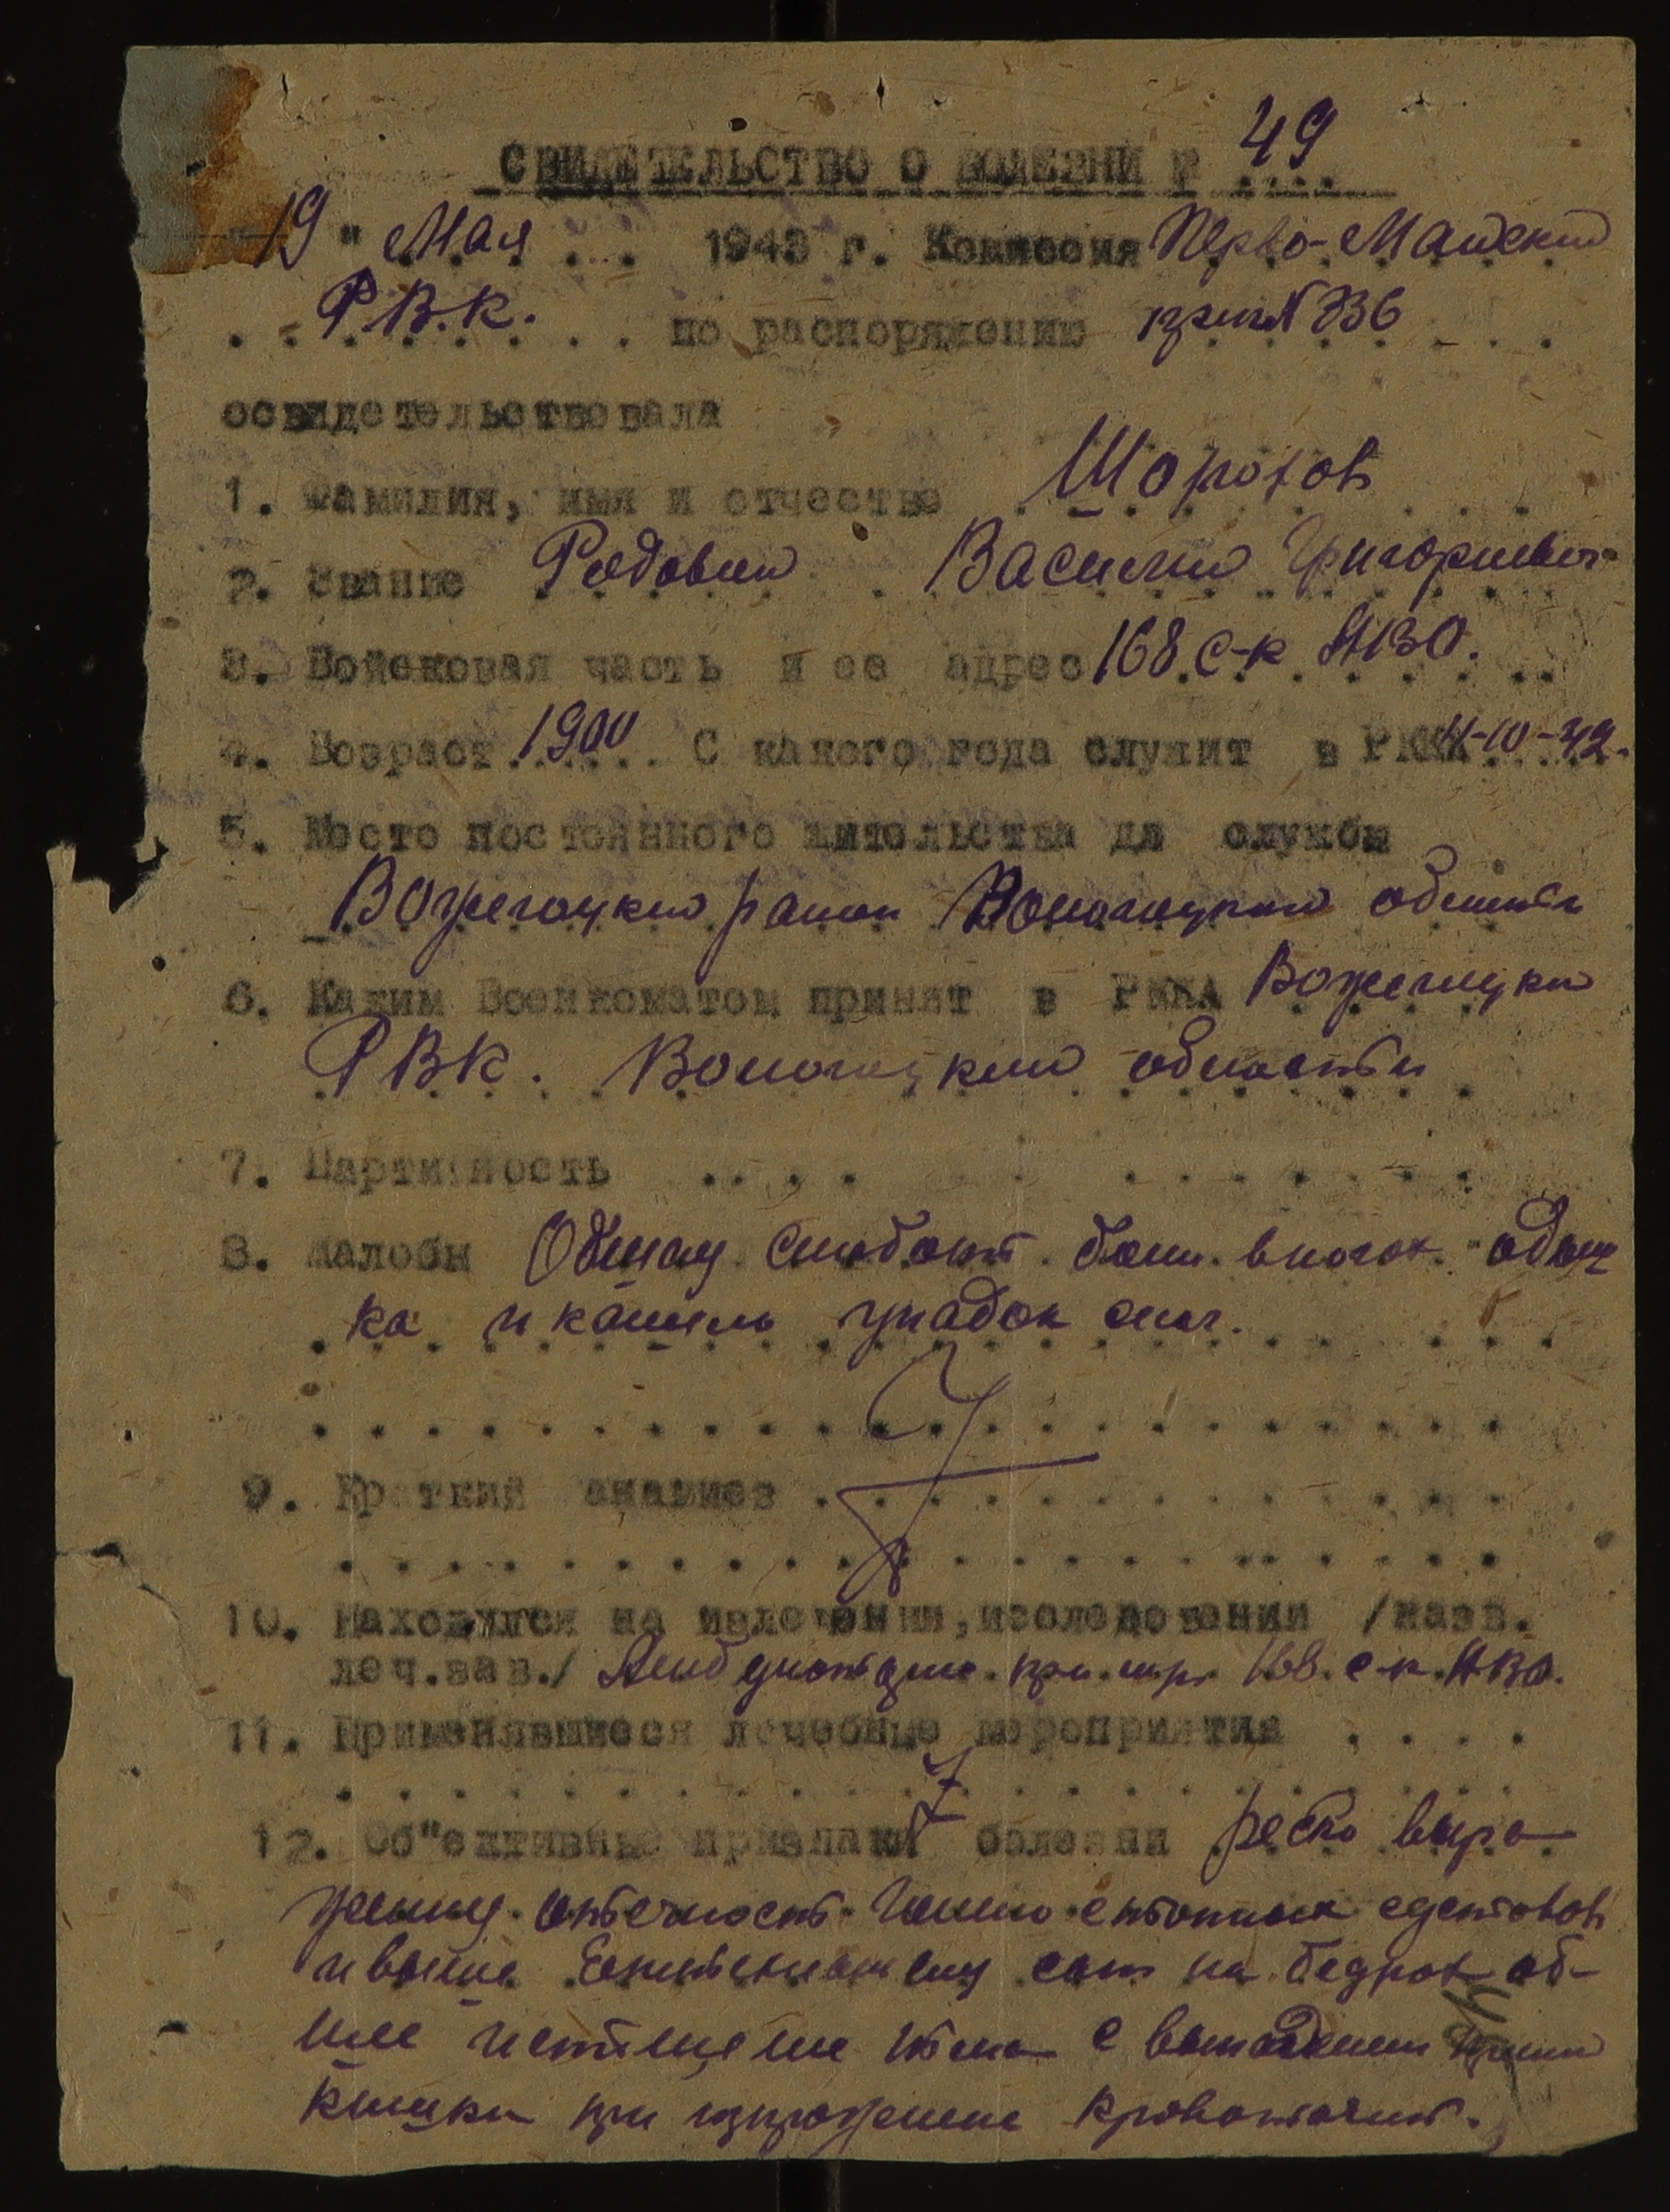 СВИДЕТЕЛЬСТВО О БОЛЕЗНИ № 49
"19" Мая 1943 г. Комиссия Перво-Майский
Р.В.К. по распоряжению №336
освидетельствовала
1. Фамилия, имя и отчество Шорохов
2. Звание Рядовой Василий Григорьевич
3. Войсковая часть и ее адрес 168 с-к
4. Возраст 1900 С какого года служит в РККА
5. Место постоянного жительства до службы
Вожегоцкий район Вологодской области
6. Каким Военкоматом принят в РККА Вожегоцки
РВК. Вологодский области
7. Партийность
8. Жалобы Общая слабость боли в ногах одыш
ка и кашель упадок сил.
9. Краткий анамнез
10. Находился на излечении, исследовании /назв.
леч.зав./ при 168 с-к
11. Применявшиеся лечебные мероприятия
12. Об"ективные признаки болезни резко выра
женную отечность голено стопных суставов
и выше сып на бедрах об-
щее истощение тела с выпадением прямой
кишки при кровоточит.